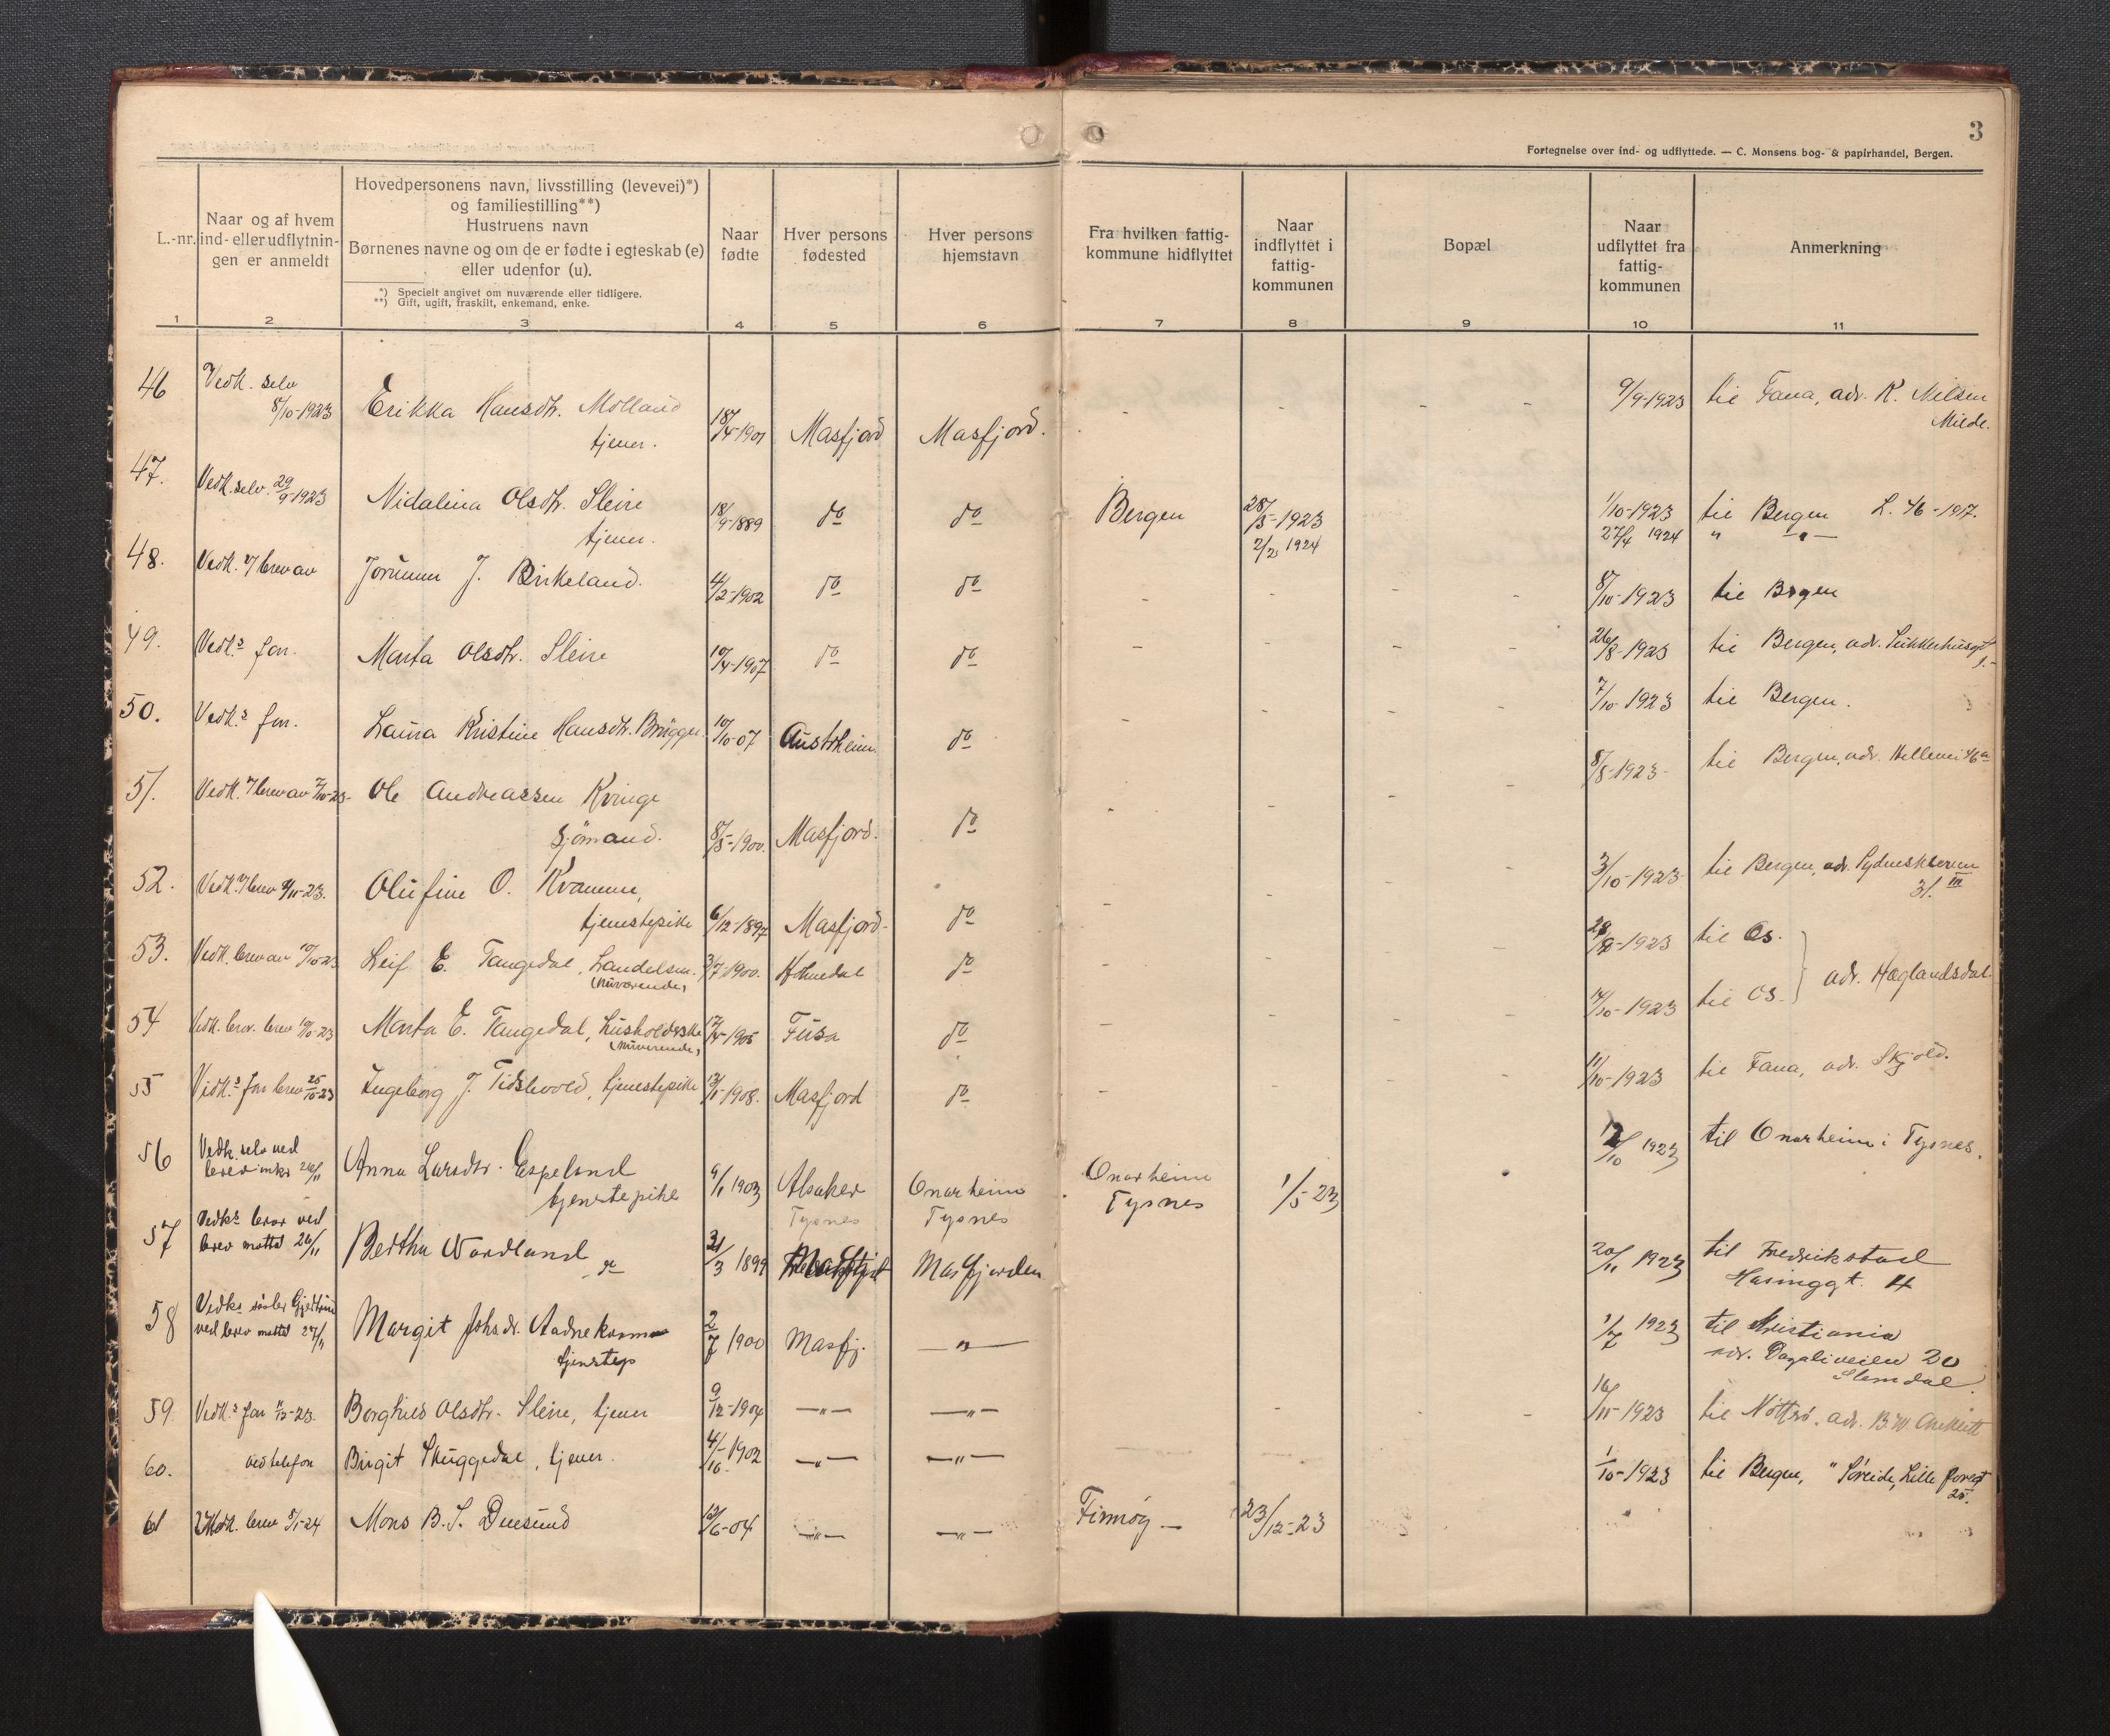 3
Fortegnelse over ind- og udflyttede. — C. Monsens bog- & papirhandel, Bergen.
L.-nr.
Naar og af hvem
ind- eller udflytnin-
gen er anmeldt
Hovedpersonens navn, livsstilling (levevei)*)
og familiestilling**)
Hustruens navn
Børnenes navne og om de er fødte i egteskab (e)
eller udenfor (u).
*) Specielt angivet om nuværende eller tidligere.
**) Gift, ugift, fraskilt, enkemand, enke.
Naar
fødte
Hver persons
fødested
Hver persons
hjemstavn
Fra hvilken fattig-
kommune hidflyttet
Naar
indflyttet i
fattig-
kommunen
Bopæl
Naar
udflyttet fra
fattig-
kommunen
Anmerkning
1 2 3 4 5 6 7 8 9 10 11
46 Vedk. selv 9/9-1923 til Fana, adr. K. Milsen
8/10-1923 Erikka Hansdtr. Molland Milde.
tjener. 18/4-1901 Masfjord Masfjord.
47. Vedk. selv. 29/9-1923 Nidalina Olsdtr. Sleire 18/9-1889 do do Bergen 28/5-1923 1/10-1923 til Bergen L. 46-1917.
tjener. 2/2 1924 27/4 1924 " — " —
48. Vedk. v/ brev av Jorunn J. Birkeland. 4/2-1902 do do 8/10-1923 til Bergen
49. Vedk.s far. Marta Olsdtr. Sleire 10/4-1907 do do 26/8-1923 til Bergen, adr. Sukkerhusgt
1.-
50. Vedk.s far. Laura Kristine Hansdtr. Brügger 10/10-07 Austrheim do 7/10-1923 til Bergen.
51. Vedk. v/ brev av 7/10-23- Ole Andreassen Kvinge 8/8-1923- til Bergen, adr. Hellevei 46a
sjømand. 8/5-1900. Masfjord. do
52. Vedk. v/ brev 9/11-23. Olufine O. Kvamme, 3/10-1923- til Bergen, adr. Sydneskleven
tjenestepike 6/12-1897 Masfjord- do 31. III
53. Vedk. brev av 10/10-23 Leif E. Tangedal, Landelsm. 3/7-1900. Holmedal do 28/9-1923 til Os.
(nuværende) adr. Hæglandsdal.
54 Vedk. brev 10/10-23 Marta E. Tangedal, husholdske 17/4-1905 Fusa do 4/10-1923 til Os.
(nuværende)
55 Vedk.s far brev 25/10-23 Ingeborg J. Tidslevold, tjenestepike 13/1-1908. Masfjord do 11/10-1923 til Fana, adr. Skjold.
56 Vedk. selv ved
brev mks 26/11 Anna Larsdtr. Espeland 9/1 1903 Alsaker Onarheim Onarheim 1/5-23 /10 1923 til Onarheim i Tysnes.
tjenstepike Tysnes Tysnes Tysnes
57 Vedks bror ved
brev mottd 26/11 Bertha Nordland do 31/3 1899 Masfjorden 20/11 1923 til Fredrikstad
4
58 Vedks søster Gjertrud
ved brev mottd 27/11 Margit Johsdr. Aadnekvamme 2/7 1900 Masfj. — " — 1/7 1923 til Kristiania
tjenstep adr. Dagaliveien 20
Slemdal.
59. Vedk.s far 11/12-23. Borghild Olsdtr. Sleire, tjener 9/12-1904 — " — — " — 16/11-1923 til Nøtterø. adr.
60. ved telefon Birgit Skuggedal, tjener. 4/10-1902 — " — — " — 1/10-1923 til Bergen, " Søreide, Lille
25.
61 Vedk. brev 8/1-24 Mons B. S. Duesund 12/6-04 — " — — " — 23/12-23